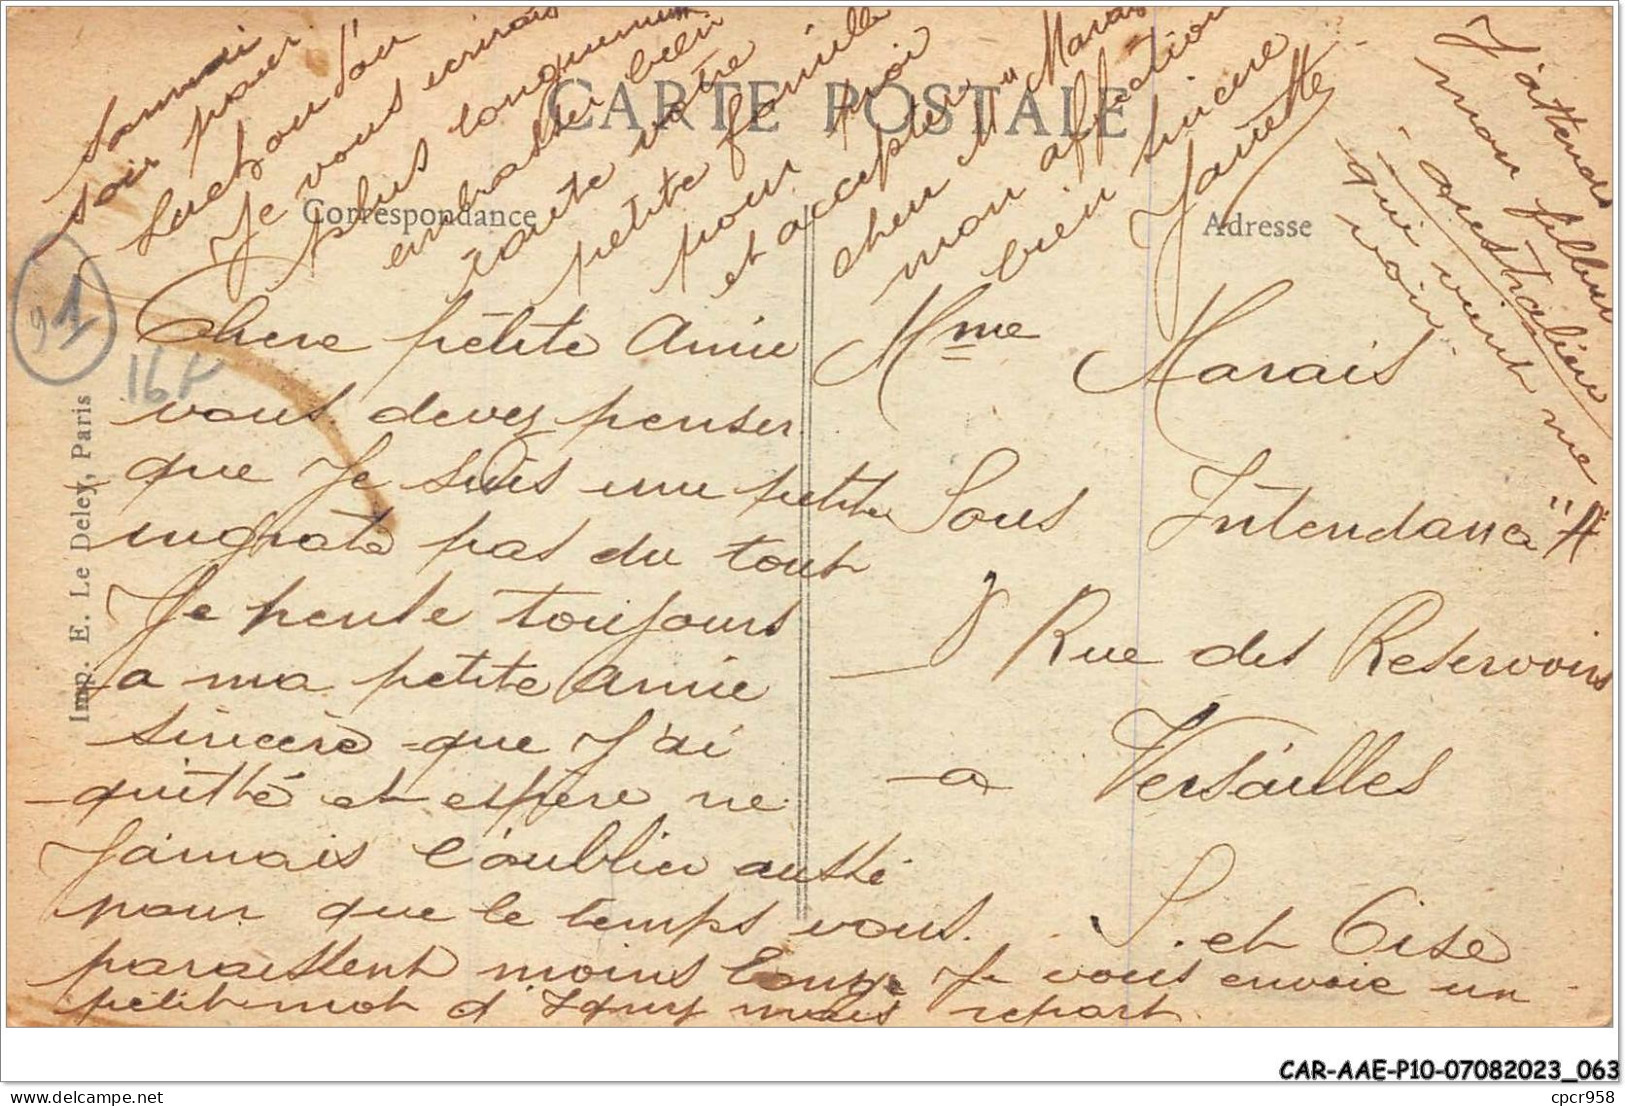 CARTE POSTALE
Correspondance
Adresse
Imp. E. Le Deley, Paris
91
16F
Chere petite Amie
vous devez penser
que Je suis une petite
ingrate pas du tout
Je pense toujours
a ma petite Amie
sincère que J'ai
quitté et espere ne
Jamais l'oublier aussi
pour que le temps vous
paraissent moins Je vous envoie un
petit mot d' mais repart
Samedi
soir pour
Je vous ecrirais
plus longuement
embrasser bien
toute votre
petite famille
pour moi
et accepter
cher Marais
mon affection
bien sincere
J'attends
mon filleul
australien
qui vient me
voir
Mme Marais
Sous Intendance "A"
8 Rue des Reservoirs
a Versailles
S. et Oise
CAR-AAE-P10-07082023_063
cpcr958